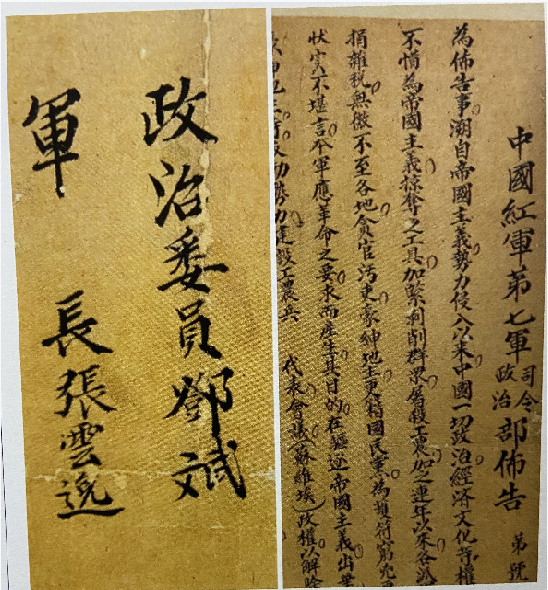 中國紅軍第七軍司令政治部佈告
第 號
為佈告事溯自帝國主義勢力侵入以來中國一切政治經濟文化等權
不惜為帝國主義掠奪之工具加緊剝削群眾屠殺工農加之連年以來各派
捐雜稅無微不至各地貪官污吏豪紳地主更藉國民黨為護符窮兇
狀實不堪言本軍應革命之要求而產生其目的在驅逐帝國主義出華
反動勢力建設工農兵代表會議(蘇維埃)政權以解除
政治委員鄧斌
軍長張雲逸